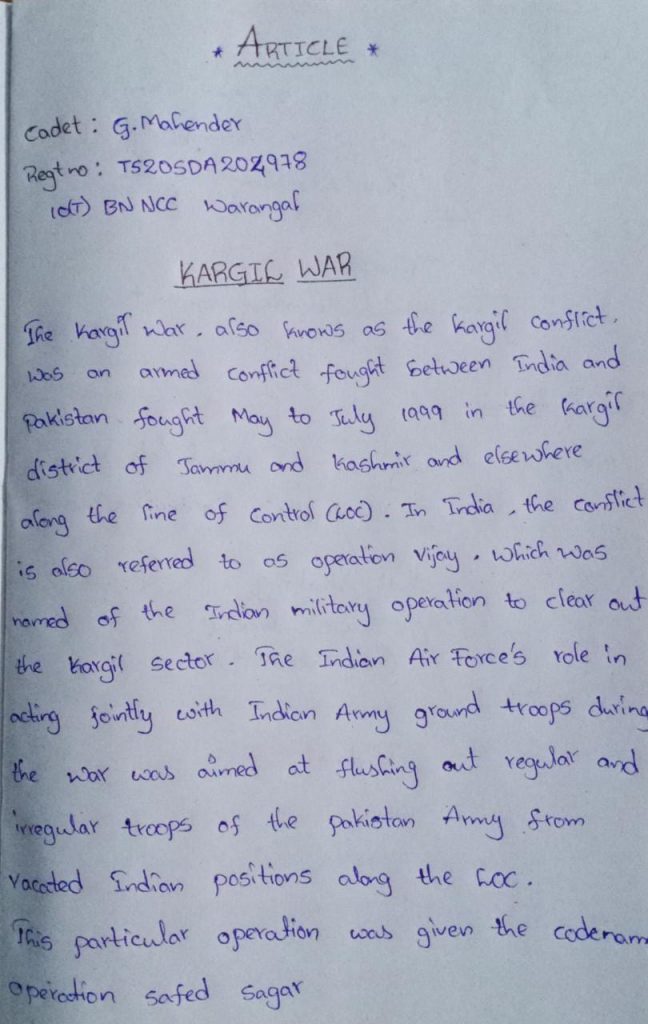 * ARTICLE *
Cadet : G. Mahender
Regt no : TS20SDA202978
1(T) BN NCC Warangal
KARGIL WAR
The Kargil War, also knows as the Kargil conflict,
was an armed conflict fought between India and
Pakistan fought May to July 1999 in the Kargil
district of Jammu and Kashmir and elsewhere
along the line of Control (LOC). In India, the conflict
is also referred to as operation Vijay, which was
named of the Indian military operation to clear out
the Kargil sector. The Indian Air Force's role in
acting jointly with Indian Army ground troops during
the war was aimed at flushing out regular and
irregular troops of the Pakistan Army from
vacated Indian positions along the LOC.
This particular operation was given the codenam
operation safed sagar